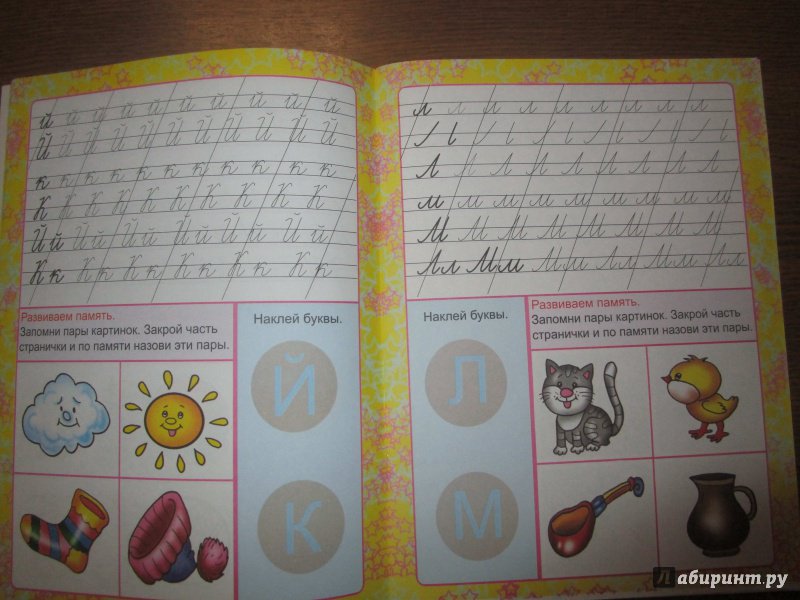 й й й й й й й й й й
Й Й Й Й Й Й Й Й Й Й Й
к к к к к к к к к к к
К К К К К К К К К К
Йй Йй Йй Йй Йй Йй
Кк Кк Кк Кк Кк Кк
Развиваем память.
Запомни пары картинок. Закрой часть
странички и по памяти назови эти пары.
Наклей буквы.
Й
К
л л л л л л л л л
Л Л Л Л Л Л Л Л
м м м м м м м м
М М М М М М М М
Лл Мм Мм Лл Мм Лл
Наклей буквы.
Л
М
Развиваем память.
Запомни пары картинок. Закрой часть
странички и по памяти назови эти пары.
Лабиринт.ру